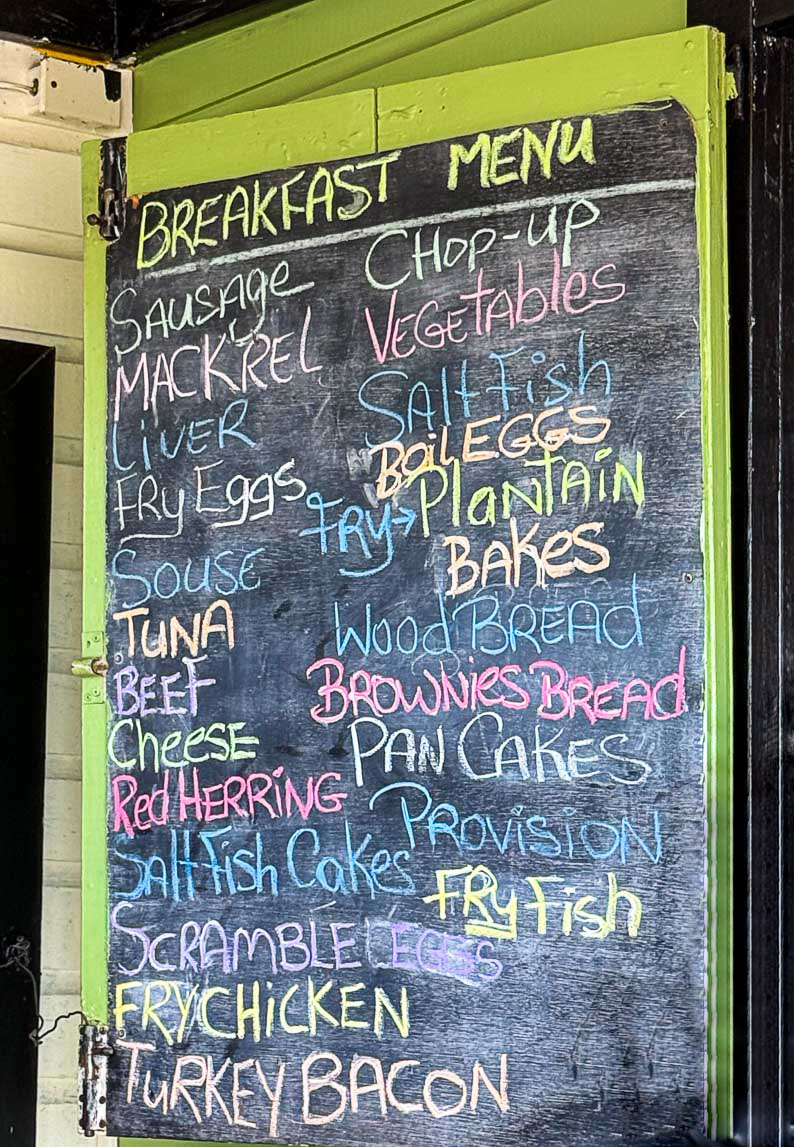 BREAKFAST MENU
SAUSAge
MACKREL
LiVER
FRy Eggs
SOUSE
TUNA
BEEF
CheeSE
Red HERRiNG
SAltFish CaKes
SCRAMBLE EGGS
FRYCHiCKEN
TuRKEY BACON
CHOP-UP
VEGEtAbles
SAltFish
BOilEGGS
FRY→PlanTAiN
BAKes
Wood BREAd
BROWNiES BREAd
PAN CAKES
PROViSiON
FRy Fish